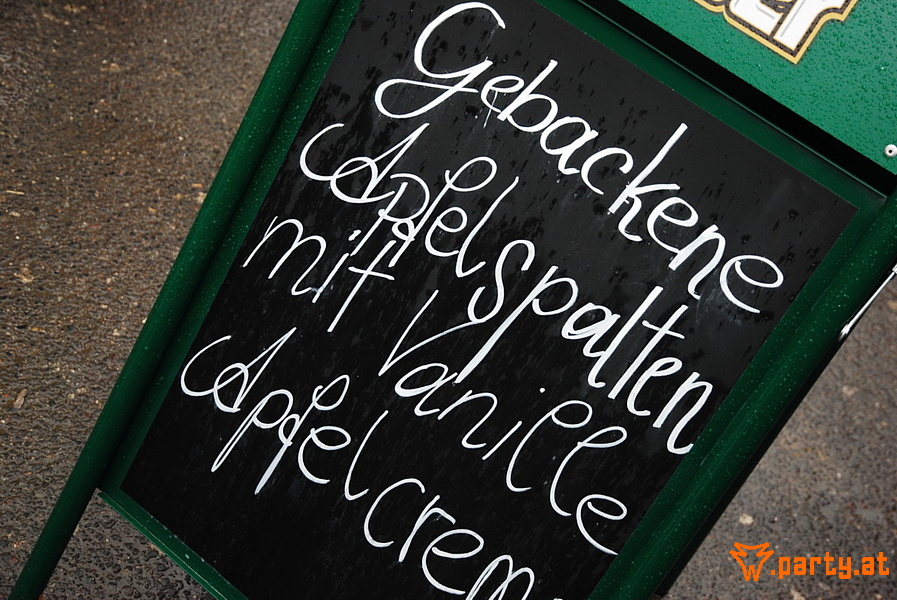 Gebackene
Apfelspalten
mit Vanille
Apfelcrem
.party.at